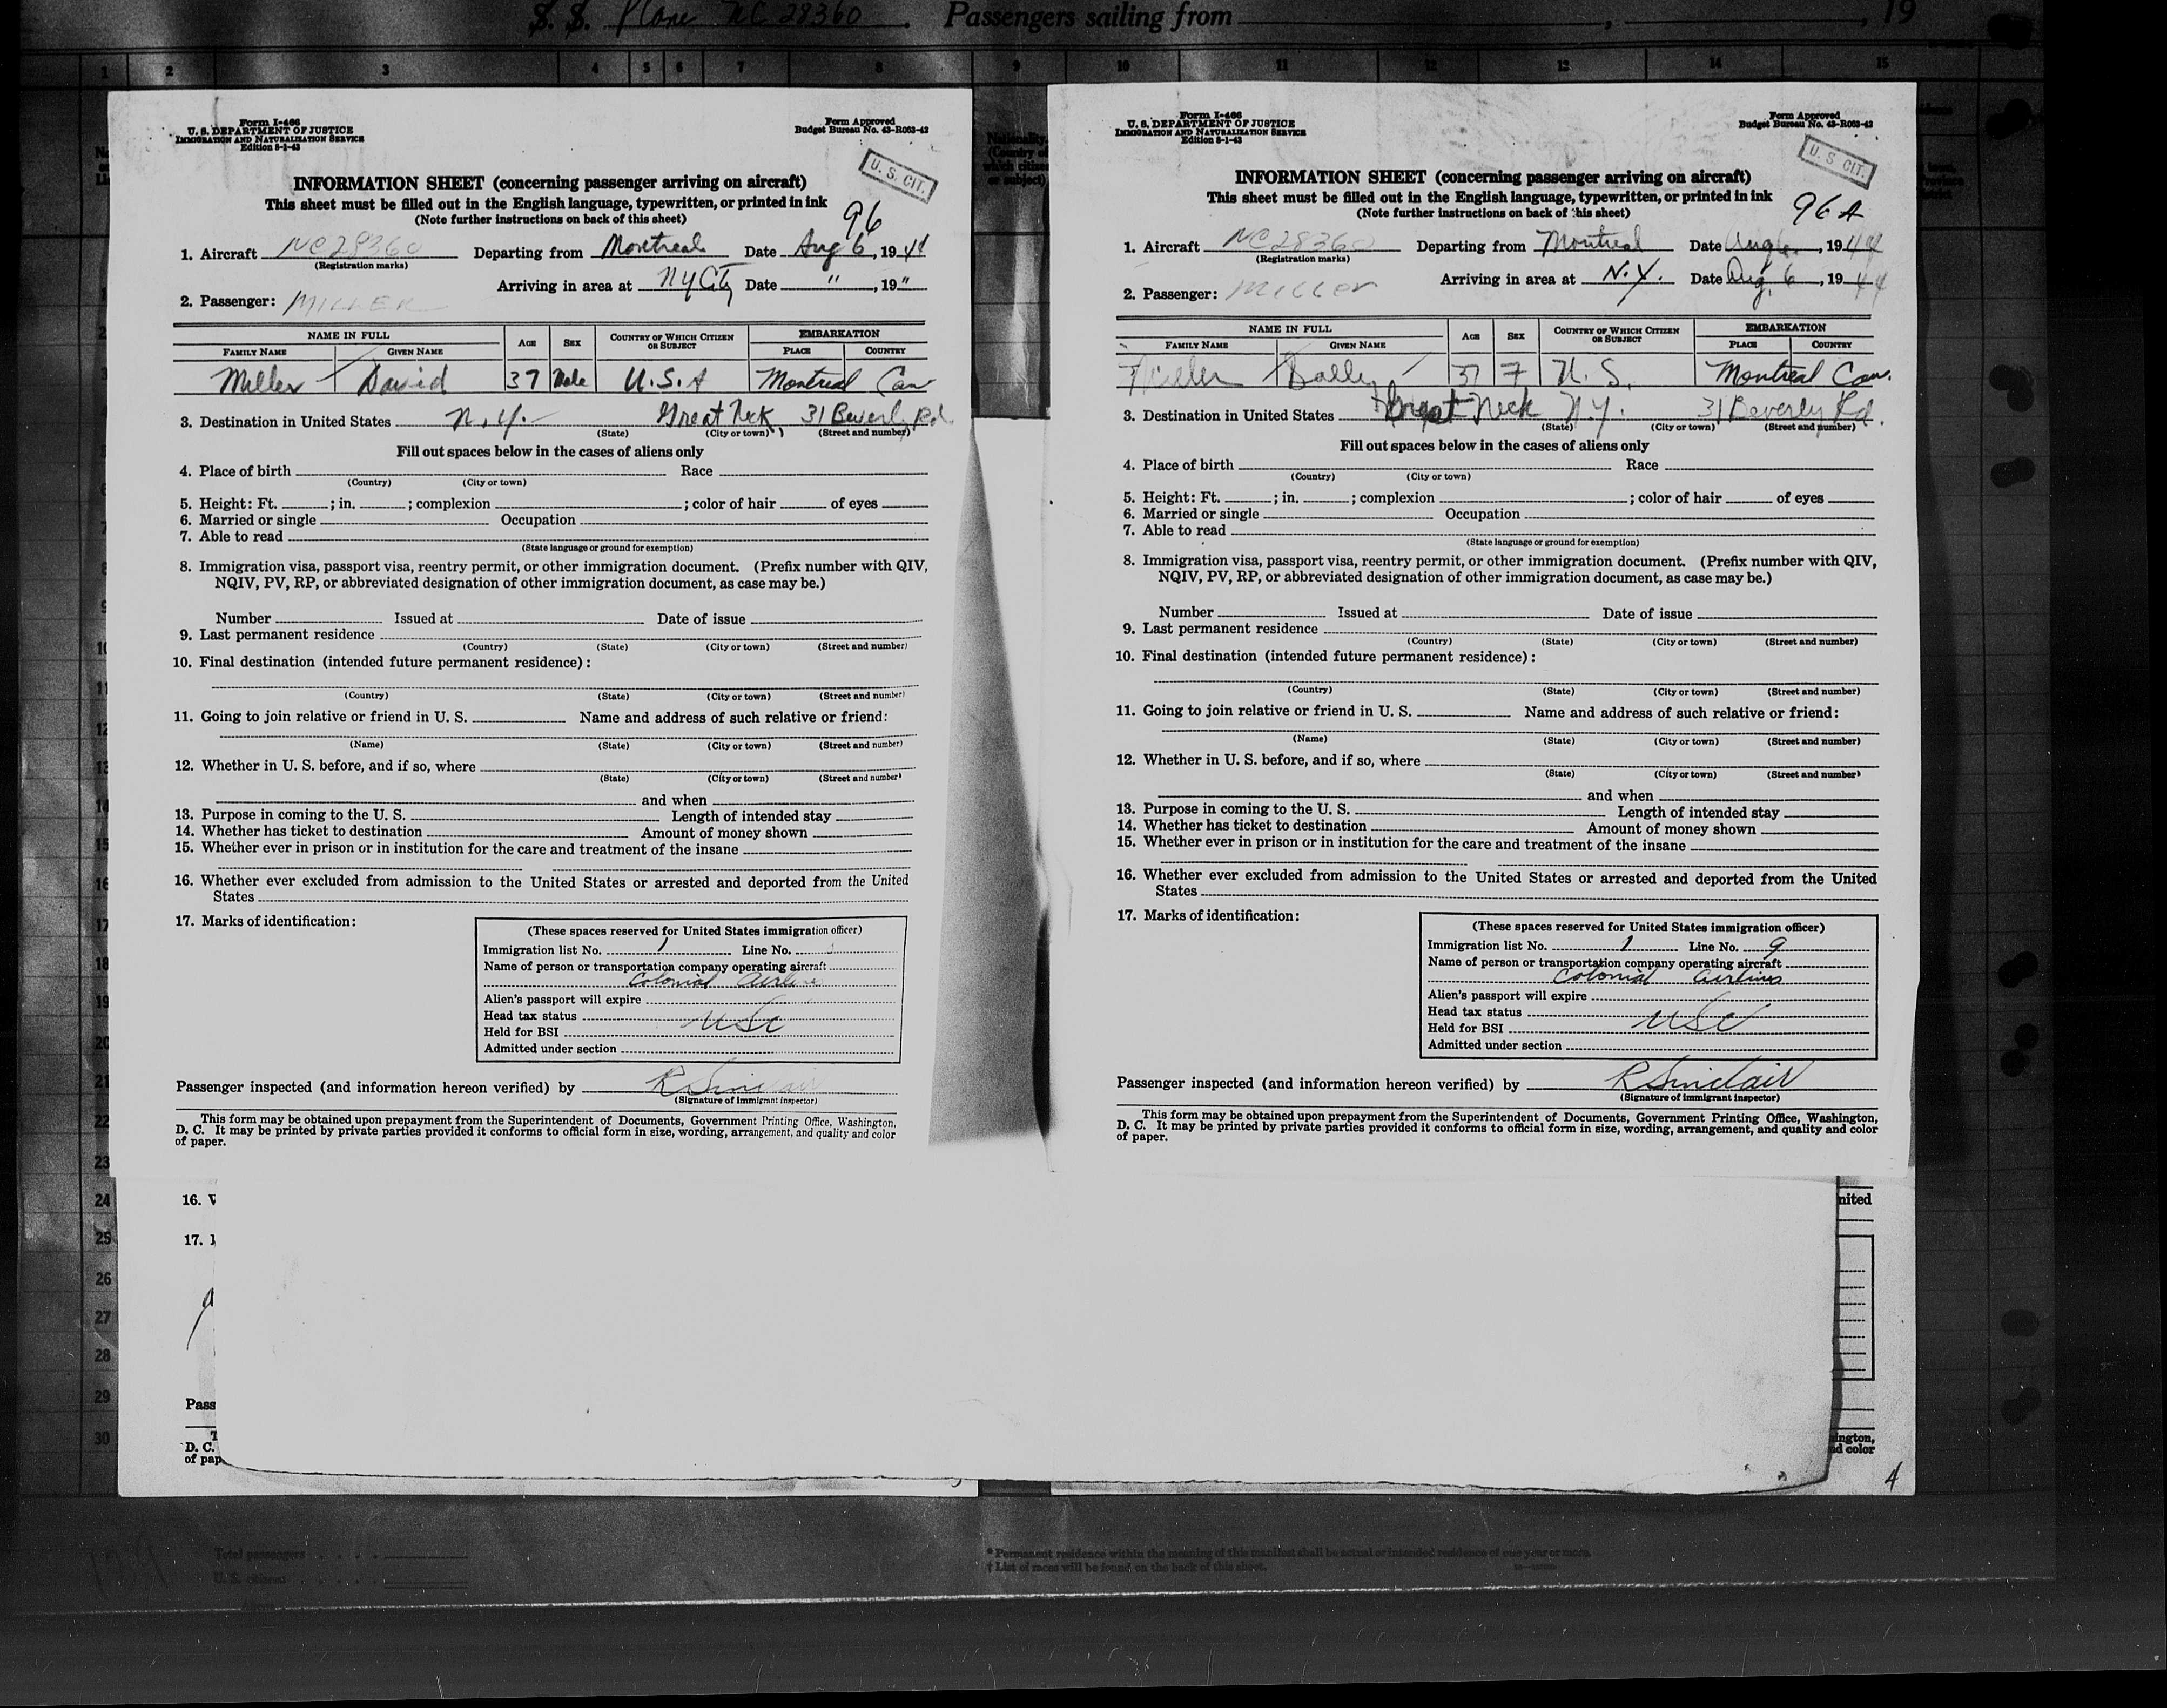 S. S. Plane NC 28360. Passengers sailing from , , 19
1 2 3 4 5 6 7 8 9 10 11 12 13 14 15
Form I-466
U. S. DEPARTMENT OF JUSTICE
IMMIGRATION AND NATURALIZATION SERVICE
Edition 8-1-43
Form Approved
Budget Bureau No. 43-R063-42
U. S. CIT.
INFORMATION SHEET (concerning passenger arriving on aircraft)
This sheet must be filled out in the English language, typewritten, or printed in ink
(Note further instructions on back of this sheet)
96
1. Aircraft NC28360 Departing from Montreal Date Aug 6, 1944
(Registration marks)
Arriving in area at NY City Date ", 19"
2. Passenger: MILLER
NAME IN FULL AGE SEX COUNTRY OF WHICH CITIZEN OR SUBJECT EMBARKATION
FAMILY NAME GIVEN NAME PLACE COUNTRY
Miller David 37 Male U.S.A Montreal Can
3. Destination in United States N.Y. Great Neck 31 Beverly Rd
(State) (City or town) (Street and number)
Fill out spaces below in the cases of aliens only
4. Place of birth Race
(Country) (City or town)
5. Height: Ft. ; in. ; complexion ; color of hair of eyes
6. Married or single Occupation
7. Able to read
(State language or ground for exemption)
8. Immigration visa, passport visa, reentry permit, or other immigration document. (Prefix number with QIV,
NQIV, PV, RP, or abbreviated designation of other immigration document, as case may be.)
Number Issued at Date of issue
9. Last permanent residence
(Country) (State) (City or town) (Street and number)
10. Final destination (intended future permanent residence):
(Country) (State) (City or town) (Street and number)
11. Going to join relative or friend in U. S. Name and address of such relative or friend:
(Name) (State) (City or town) (Street and number)
12. Whether in U. S. before, and if so, where
(State) (City or town) (Street and number)
and when
13. Purpose in coming to the U. S. Length of intended stay
14. Whether has ticket to destination Amount of money shown
15. Whether ever in prison or in institution for the care and treatment of the insane
16. Whether ever excluded from admission to the United States or arrested and deported from the United
States
17. Marks of identification:
(These spaces reserved for United States immigration officer)
Immigration list No. 1 Line No.
Name of person or transportation company operating aircraft
Colonial Airlines
Alien's passport will expire
Head tax status USC
Held for BSI
Admitted under section
Passenger inspected (and information hereon verified) by R Sinclair
(Signature of immigrant inspector)
This form may be obtained upon prepayment from the Superintendent of Documents, Government Printing Office, Washington,
D. C. It may be printed by private parties provided it conforms to official form in size, wording, arrangement, and quality and color
of paper.
Form I-466
U. S. DEPARTMENT OF JUSTICE
IMMIGRATION AND NATURALIZATION SERVICE
Edition 8-1-43
Form Approved
Budget Bureau No. 43-R063-42
U. S. CIT.
INFORMATION SHEET (concerning passenger arriving on aircraft)
This sheet must be filled out in the English language, typewritten, or printed in ink
(Note further instructions on back of this sheet)
96 A
1. Aircraft NC28360 Departing from Montreal Date Aug 6, 1944
(Registration marks)
Arriving in area at N.Y. Date Aug. 6, 1944
2. Passenger: Miller
NAME IN FULL AGE SEX COUNTRY OF WHICH CITIZEN OR SUBJECT EMBARKATION
FAMILY NAME GIVEN NAME PLACE COUNTRY
Miller 37 F U. S. Montreal Can.
3. Destination in United States Great Neck N.Y. 31 Beverly Rd.
(State) (City or town) (Street and number)
Fill out spaces below in the cases of aliens only
4. Place of birth Race
(Country) (City or town)
5. Height: Ft. ; in. ; complexion ; color of hair of eyes
6. Married or single Occupation
7. Able to read
(State language or ground for exemption)
8. Immigration visa, passport visa, reentry permit, or other immigration document. (Prefix number with QIV,
NQIV, PV, RP, or abbreviated designation of other immigration document, as case may be.)
Number Issued at Date of issue
9. Last permanent residence
(Country) (State) (City or town) (Street and number)
10. Final destination (intended future permanent residence):
(Country) (State) (City or town) (Street and number)
11. Going to join relative or friend in U. S. Name and address of such relative or friend:
(Name) (State) (City or town) (Street and number)
12. Whether in U. S. before, and if so, where
(State) (City or town) (Street and number)
and when
13. Purpose in coming to the U. S. Length of intended stay
14. Whether has ticket to destination Amount of money shown
15. Whether ever in prison or in institution for the care and treatment of the insane
16. Whether ever excluded from admission to the United States or arrested and deported from the United
States
17. Marks of identification:
(These spaces reserved for United States immigration officer)
Immigration list No. 1 Line No. 9
Name of person or transportation company operating aircraft
Colonial Airlines
Alien's passport will expire
Head tax status USC
Held for BSI
Admitted under section
Passenger inspected (and information hereon verified) by R Sinclair
(Signature of immigrant inspector)
This form may be obtained upon prepayment from the Superintendent of Documents, Government Printing Office, Washington,
D. C. It may be printed by private parties provided it conforms to official form in size, wording, arrangement, and quality and color
of paper.
23
24 16. nited
25 17.
26
27
28
29 Pass
30 D. C. ington,
of pap d color
4
Total passengers
U. S. citizens
* Permanent residence within the meaning of this manifest shall be actual or intended residence of one year or more.
† List of races will be found on the back of this sheet.